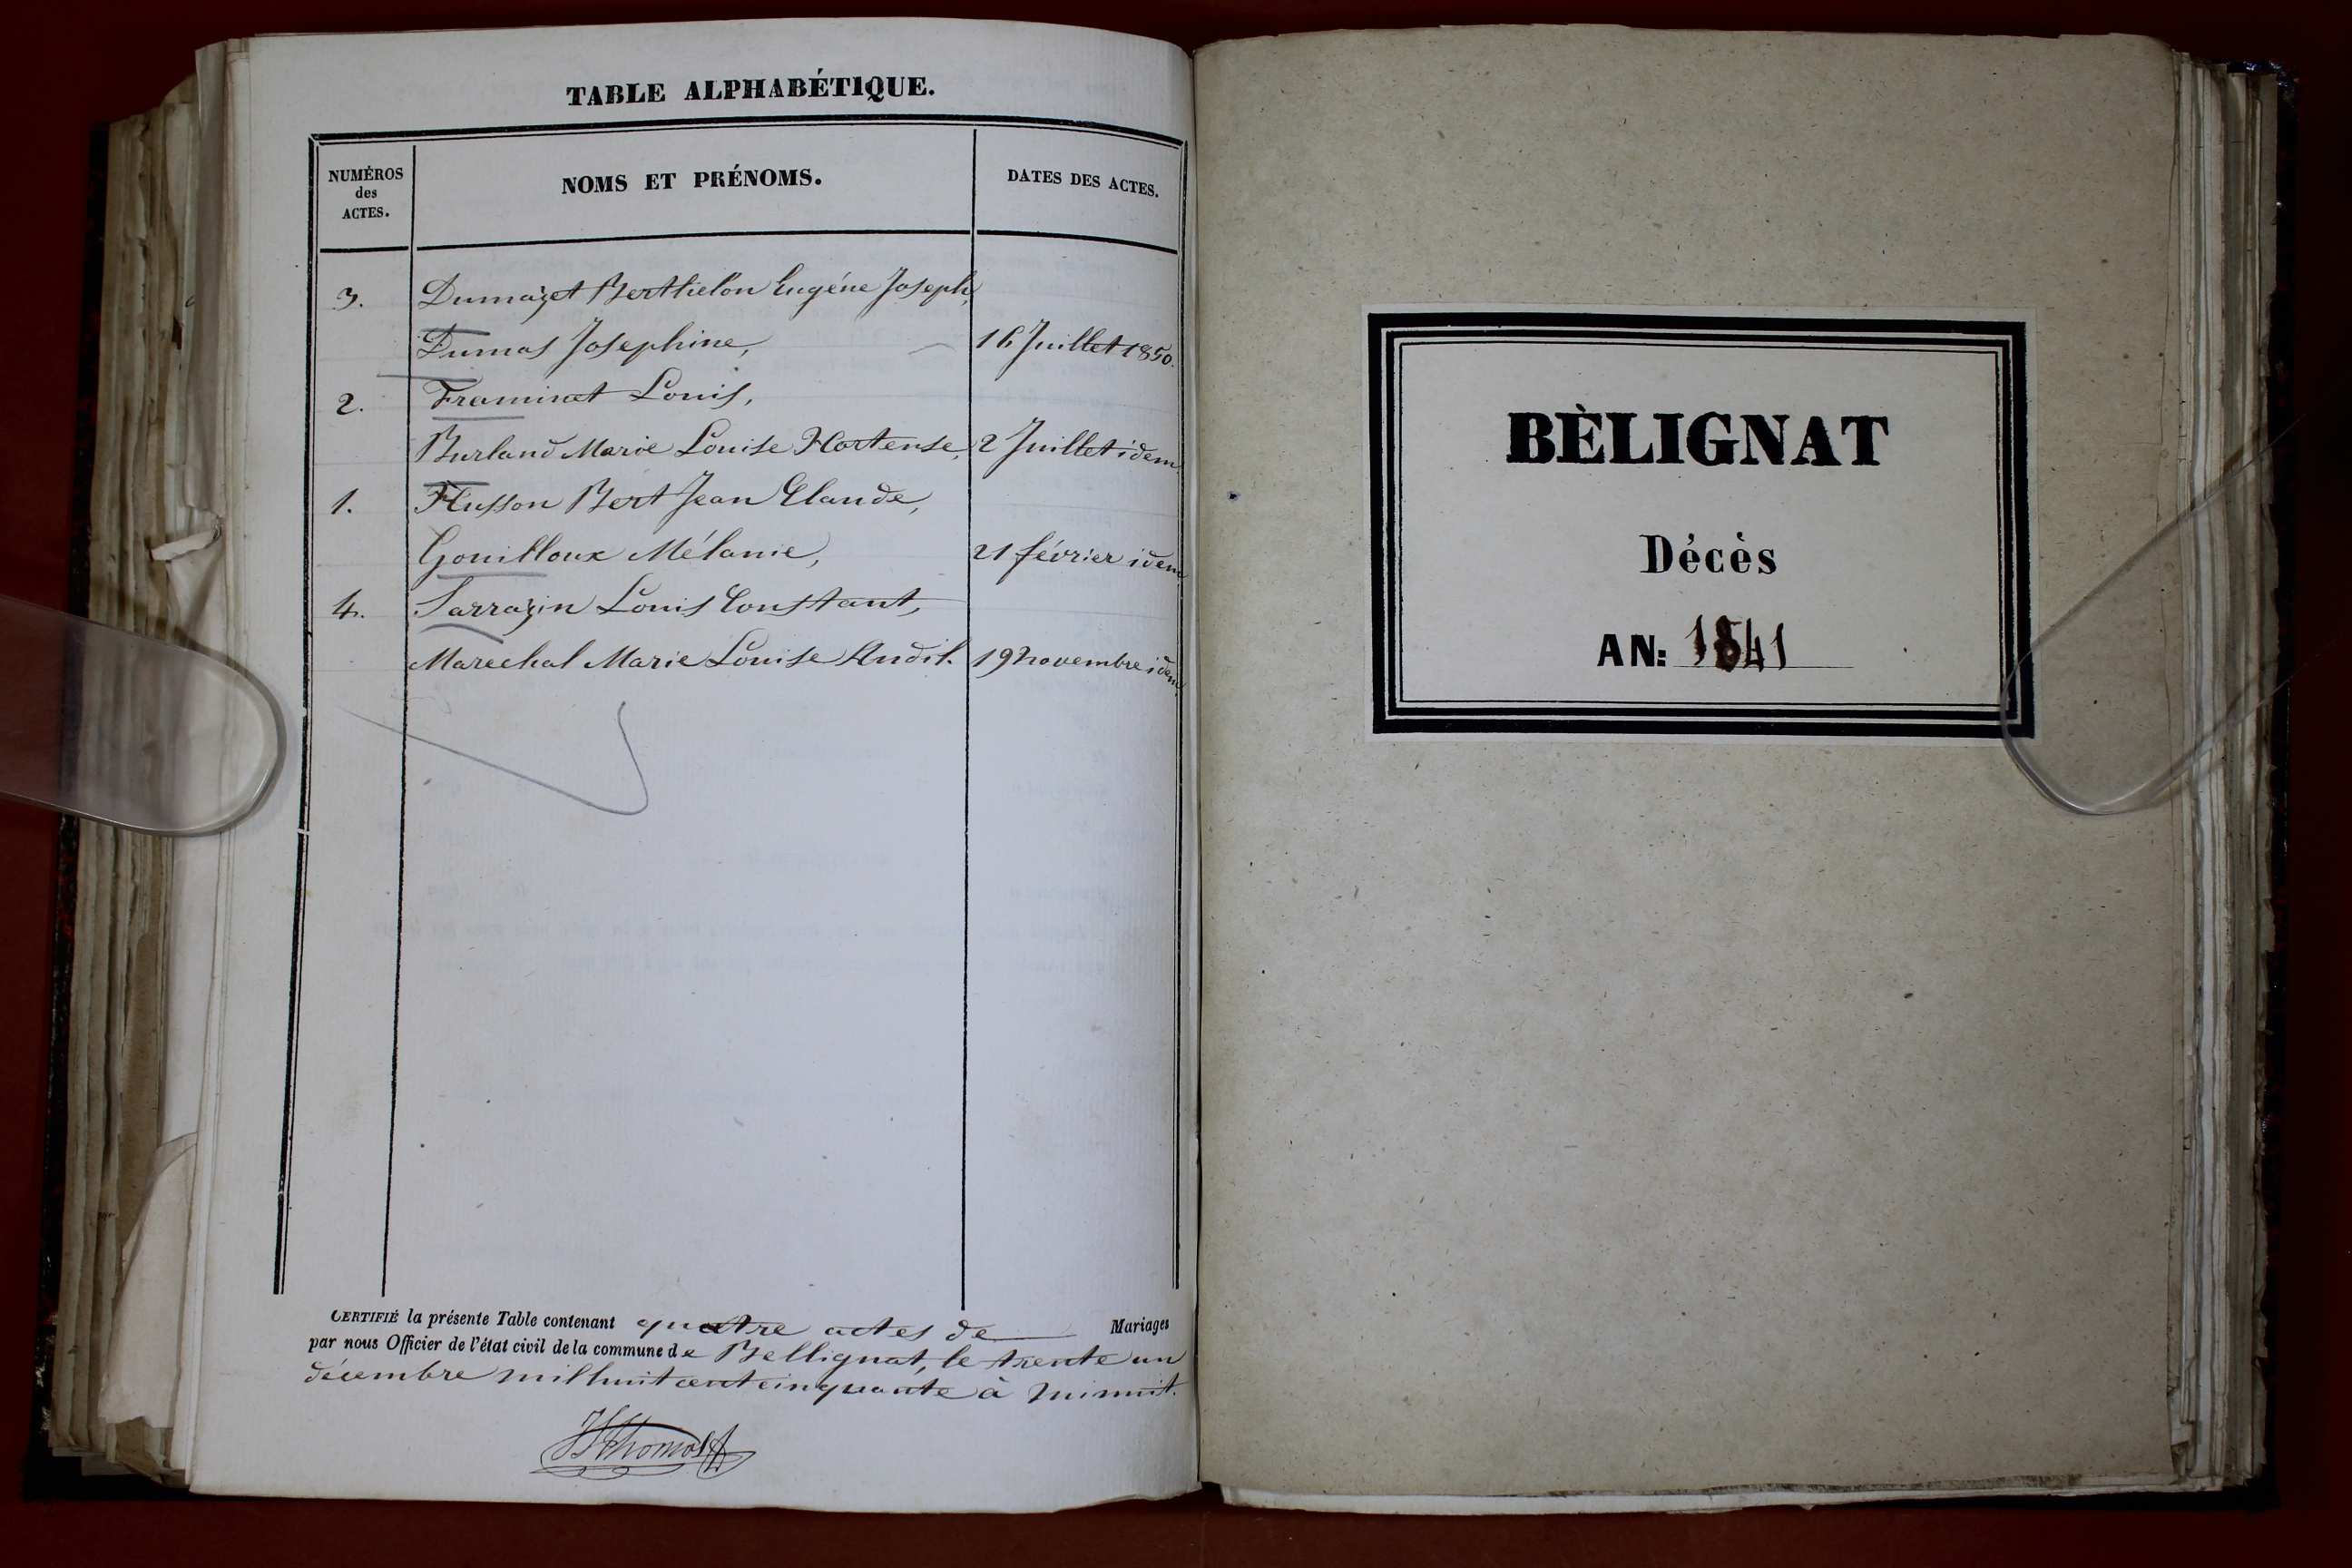 TABLE ALPHABÉTIQUE.
NUMÉROS des ACTES.
NOMS ET PRÉNOMS.
DATES DES ACTES.
3. Dumazet Berthelon Eugéne Joseph,
Dumas Josephine, 16 Juillet 1850.
2. Framinet Louis,
Burland Marie Louise Hortense, 2 Juillet idem
1. Husson Bert Jean Claude,
Gouilloux Mélanie, 21 février idem
4. Sarrazin Louis Constant,
Marechal Marie Louise 19 novembre idem
CERTIFIÉ la présente Table contenant quatre actes de Mariages
par nous Officier de l'état civil de la commune de Bellignat, le trente un
décembre mil huit cent cinquante à minuit.
Thomas
BÈLIGNAT
Décès
AN: 1841